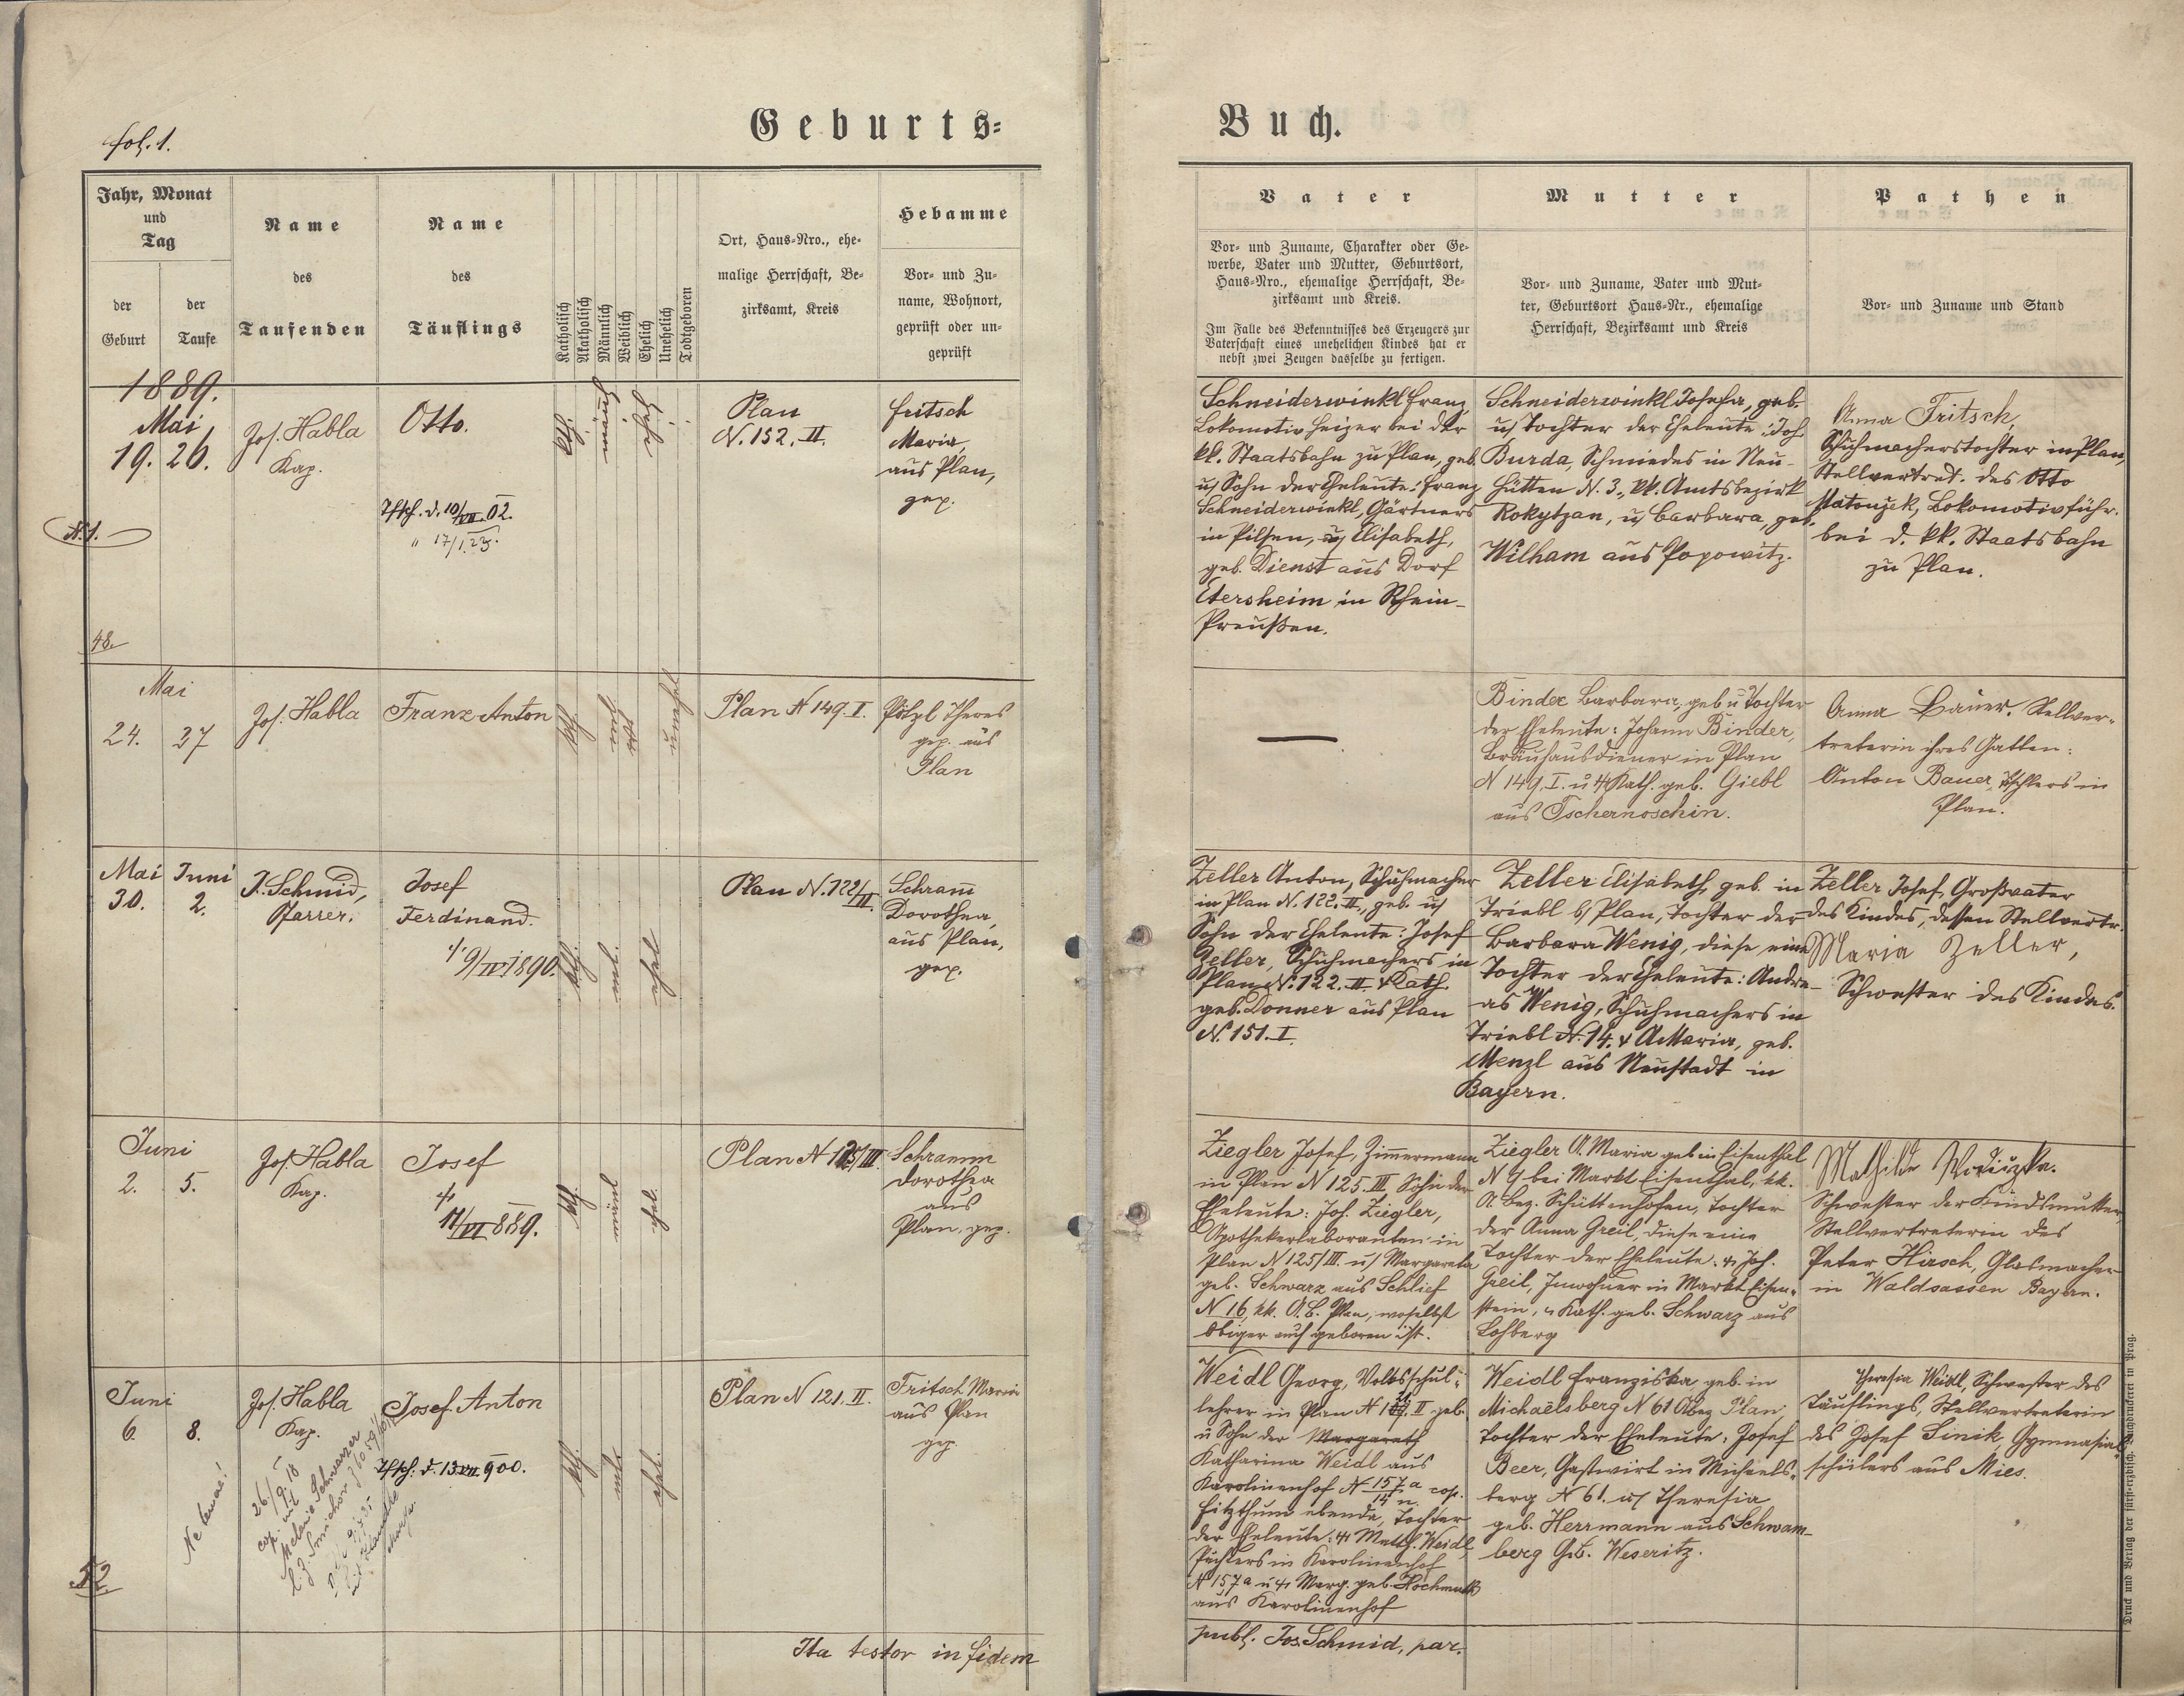 fol. 1.
Geburts-
Buch.
Jahr, Monat
und
Tag
der
Geburt
der
Taufe
Name
des
Taufenden
Name
des
Täuflings
Katholisch
Akatholisch
Männlich
Weiblich
Ehelich
Unehelich
Todtgeboren
Ort, Haus-Nro., ehe-
malige Herrschaft, Be-
zirksamt, Kreis
Hebamme
Vor- und Zu-
name, Wohnort,
geprüft oder un-
geprüft
Vater
Vor- und Zuname, Charakter oder Ge-
werbe, Vater und Mutter, Geburtsort,
Haus-Nro., ehemalige Herrschaft, Be-
zirksamt und Kreis.
Im Falle des Bekenntnisses des Erzeugers zur
Vaterschaft eines unehelichen Kindes hat er
nebst zwei Zeugen dasselbe zu fertigen.
Mutter
Vor- und Zuname, Vater und Mut-
ter, Geburtsort Haus-Nr., ehemalige
Herrschaft, Bezirksamt und Kreis
Pathen
Vor- und Zuname und Stand
1889.
Mai
19. 26.
N. 1.
48.
Jos. Habla
Kap.
Otto.
Tfsch. d. 10/VII. 02.
" 17/I. 23.
Plan
N. 152. II.
Fritsch
Maria,
aus Plan,
gep.
Schneiderwinkl Franz
Lokomotivheizer bei der
kk. Staatsbahn zu Plan, geb.
u/ Sohn der Eheleute: Franz
Schneiderwinkl, Gärtners
in Pilsen, u/ Elisabeth,
geb. Dienst aus Dorf
Etersheim in Rhein-
Preußen.
Schneiderwinkl Josefa, geb.
u/ Tochter der Eheleute: Joh.
Burda, Schmiedes in Neu-
hütten N. 3., kk. Amtsbezirk
Rokytzan, u/ Barbara, geb.
Wilham aus Popowitz.
Anna Fritsch,
Schuhmacherstochter in Plan,
Stellvertret. des Otto
Matoušek, Lokomotivführ.
bei d. kk. Staatsbahn
zu Plan.
Mai
24. 27
Jos. Habla
Franz Anton
Plan N 149. I.
Pötzl Theres
gep. aus
Plan
Binder Barbara, geb u Tochter
der Eheleute: Johann Binder,
Bräuhausdiener in Plan
N 149. I. u Kath. geb. Giebl
aus Tschernoschin.
Anna Bauer. Stellver-
treterin ihres Gatten:
Anton Bauer, Tischlers in
Plan.
Mai Juni
30. 2.
J. Schmid,
Pfarrer.
Josef
Ferdinand.
† 9/IV. 1890.
Plan N. 122/II.
Schram
Dorothea,
aus Plan,
gep.
Zeller Anton, Schuhmacher
in Plan N. 122. II., geb. u/
Sohn der Eheleute: Josef
Zeller, Schuhmachers in
Plan N. 122. II & Kath.
geb. Donner aus Plan
N. 151. I.
Zeller Elisabeth, geb. in
Triebl b/ Plan, Tochter der
Barbara Wenig, diese eine
Tochter der Eheleute: Andre-
as Wenig, Schuhmachers in
Triebl N. 14. & A. Maria, geb.
Menzl aus Neustadt in
Bayern.
Zeller Josef, Großvater
des Kindes, dessen Stellvertr.
Maria Zeller,
Schwester des Kindes.
Juni
2. 5.
Jos. Habla
Kap.
Josef
†
11/VI 889.
Plan N 125/III.
Schramm
Dorothea
aus
Plan, gep.
Ziegler Josef, Zimmermann
in Plan N 125. III Sohn der
Eheleute: Jos. Ziegler,
Apothekerlaboranten in
Plan N 125/III. u/ Margareta
geb. Schwarz aus Schlief
N 16, kk. A. B. Plan, woselbst
Obiger auch geboren ist.
Ziegler A. Maria geb in Eisenthal
bei Markt Eisenthal, kk.
A. Bez. Schüttenhofen, Tochter
der Anna Greil, diese eine
Tochter der Eheleute: † Joh.
Greil, Inwohner in Markt Eisen-
stein, u Kath. geb. Schwarz aus
Lohberg
Mathilde
Schwester der Kindsmutter,
Stellvertreterin des
Peter Hirsch, Glasmacher
in Waldsassen Bayern.
Juni
6. 8.
52.
Ne temere!
Jos. Habla
Kap.
26/9. 18
cop. mit
Melanie Schwarzer
Josef Anton
Tfsch. d. 13. VII 900.
Plan N 121. II.
Fritsch Maria
aus Plan
gep.
Weidl Georg, Volksschul-
lehrer in Plan N 121. II geb.
u Sohn der Margareth
Katharina Weidl aus
Karolinenhof N 157 a cop.
Fitzthum ebenda, Tochter
der Eheleute: † Math. Weidl,
Pächters in Karolinenhof
N 157 a u † Marg. geb. Hochmuth
aus Karolinenhof
Weidl Franziska geb. in
Michaelsberg N 61 Abez Plan,
Tochter der Eheleute: Josef
Beer, Gastwirt in Michaels-
berg N 61. u/ Theresia
geb. Herrmann aus Schwam-
berg Gb. Weseritz.
Theresia Weidl, Schwester des
Täuflings, Stellvertreterin
des Josef Sinik, Gymnasial-
schülers aus Mies.
Ita testor in fidem
publ. Jos. Schmid, par.
Druck und Verlag der fürst-erzbisch. Buchdruckerei in Prag.